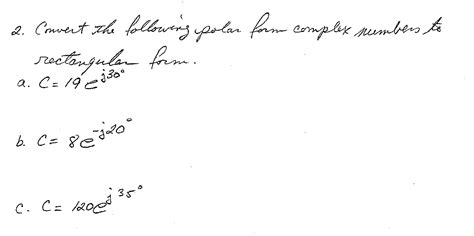 2. Convert the following polar form complex numbers to
rectangular form.
a. C = 19e^{j30°}
b. C = 8e^{-j20°}
c. C = 120e^{j35°}